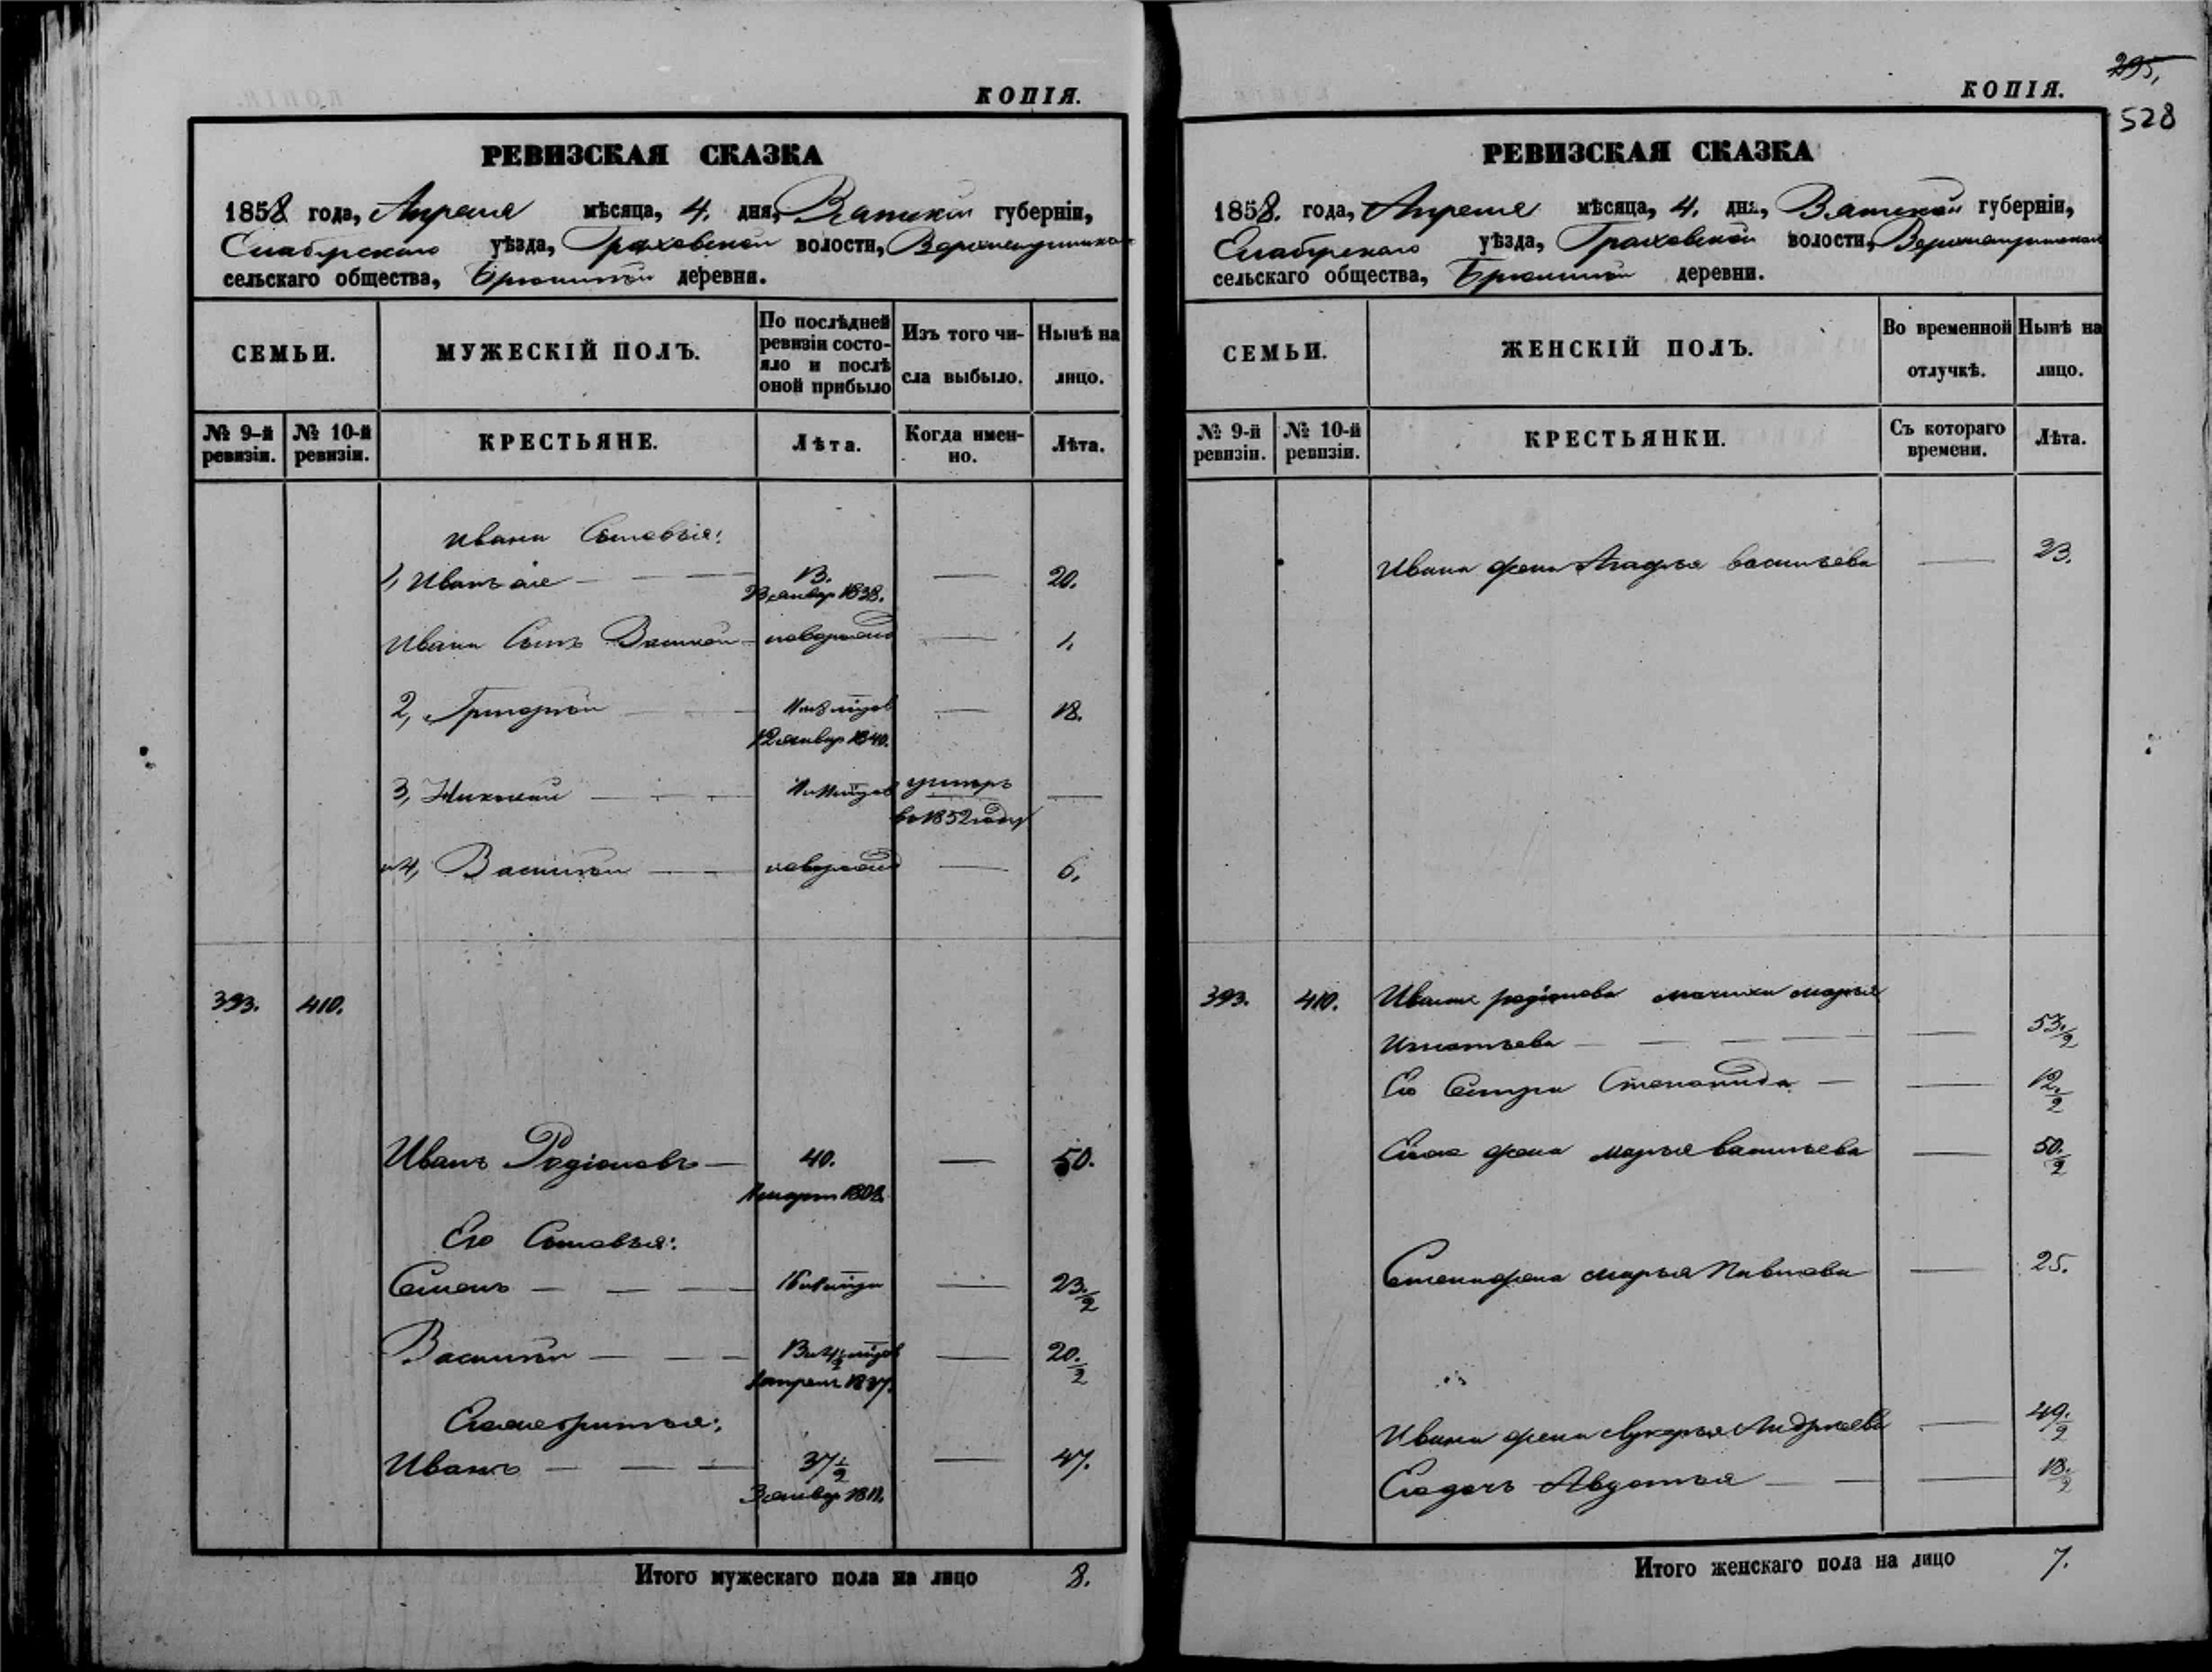 КОПІЯ.
РЕВИЗСКАЯ СКАЗКА
1858 года, Апреля мѣсяца, 4. дня, Вятской губерніи,
Елабужскаго уѣзда, Граховской волости,
сельскаго общества, деревни.
СЕМЬИ.
МУЖЕСКІЙ ПОЛЪ.
По послѣдней ревизіи состояло и послѣ оной прибыло
Изъ того числа выбыло.
Нынѣ на лицо.
№ 9-й ревизіи.
№ 10-й ревизіи.
КРЕСТЬЯНЕ.
Лѣта.
Когда именно.
Лѣта.
Ивана Сыновья:
1, Иванъ 13. 20.
23 январ 1838.
Ивана Сынъ Василей новорожд 1.
2, Григорій 18.
12 январ 1840.
3, Николай умеръ
во 1852 году
и 4, Василій новорожд 6.
393. 410.
Иванъ Родіоновъ 40. 50.
1 март 1808.
Его Сыновья:
Семенъ 23 1/2
Василій 20 1/2
1 апрель 1837.
Иванъ 37 1/2 47.
3 январ 1811.
Итого мужескаго пола на лицо 8.
КОПІЯ.
295,
528
РЕВИЗСКАЯ СКАЗКА
1858. года, Апреля мѣсяца, 4. дня, Вятской губерніи,
Елабужскаго уѣзда, Граховской волости,
сельскаго общества, деревни.
СЕМЬИ.
ЖЕНСКІЙ ПОЛЪ.
Во временной отлучкѣ.
Нынѣ на лицо.
№ 9-й ревизіи.
№ 10-й ревизіи.
КРЕСТЬЯНКИ.
Съ котораго времени.
Лѣта.
Ивана жена Агафья васильева 23.
393. 410. Ивана родіонова мачиха марья
Игнатьева 53 1/2
Его Сестра Степанида 12 1/2
Его жена марья васильева 50 1/2
Семена жена марья Павлова 25.
Ивана жена Лукерья Андреева 49 1/2
Его дочь Авдотья 18 1/2
Итого женскаго пола на лицо 7.